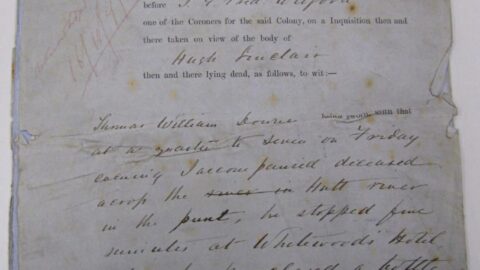 before J. G.
one of the Coroners for the said Colony, on a Inquisition then and
there taken on view of the body of
Hugh Sinclair
then and there lying dead, as follows, to wit:—
Thomas William Dourie being sworn, saith that
at a quarter to seven on Friday
evening I accompanied deceased
across the river in Hutt river
in the punt, he stopped five
minutes at Whitewoods Hotel